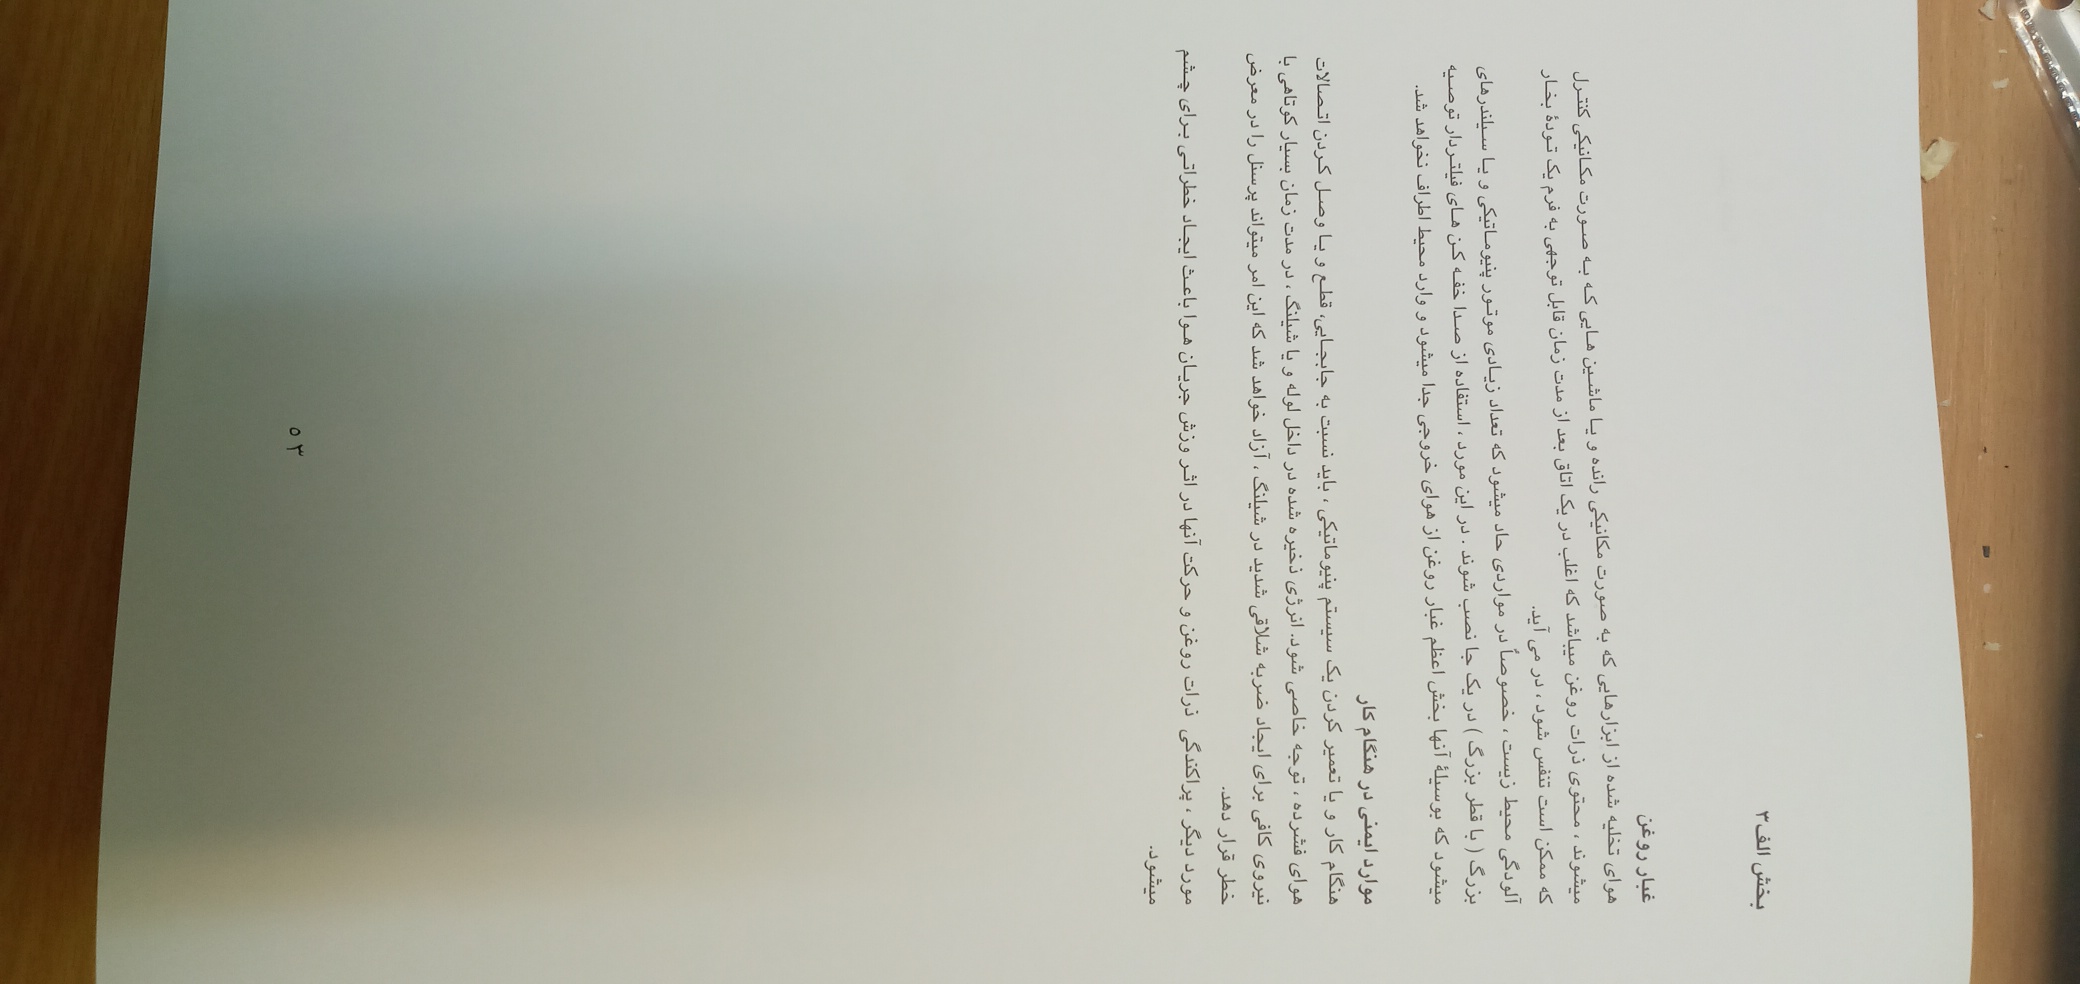 بخش الف۳
غبار روغن
هوای تخلیه شده از ابزارهایی که به صورت مکانیکی رانده و یا ماشین هایی که به صورت مکانیکی کنترل
میشوند ، محتوی ذرات روغن میباشد که اغلب در یک اتاق بعد از مدت زمان قابل توجهی به فرم یک تودهٔ بخار
که ممکن است تنفس شود ، در می آید.
آلودگی محیط زیست ، خصوصاً در مواردی حاد میشود که تعداد زیادی موتور پنیوماتیکی و یا سیلندرهای
بزرگ ( با قطر بزرگ ) در یک جا نصب شوند . در این مورد ، استفاده از صدا خفه کن های فیلتردار توصیه
میشود که بوسیلهٔ آنها بخش اعظم غبار روغن از هوای خروجی جدا میشود و وارد محیط اطراف نخواهد شد.
موارد ایمنی در هنگام کار
هنگام کار و یا تعمیر کردن یک سیستم پنیوماتیکی ، باید نسبت به جابجایی، قطع و یا وصل کردن اتصالات
هوای فشرده ، توجه خاصی شود. انرژی ذخیره شده در داخل لوله و یا شیلنگ ، در مدت زمان بسیار کوتاهی با
نیروی کافی برای ایجاد ضربه شلاقی شدید در شیلنگ ، آزاد خواهد شد که این امر میتواند پرسنل را در معرض
خطر قرار دهد.
مورد دیگر ، پراکندگی ذرات روغن و حرکت آنها در اثر وزش جریان هوا باعث ایجاد خطراتی برای چشم
میشود.
۵۳